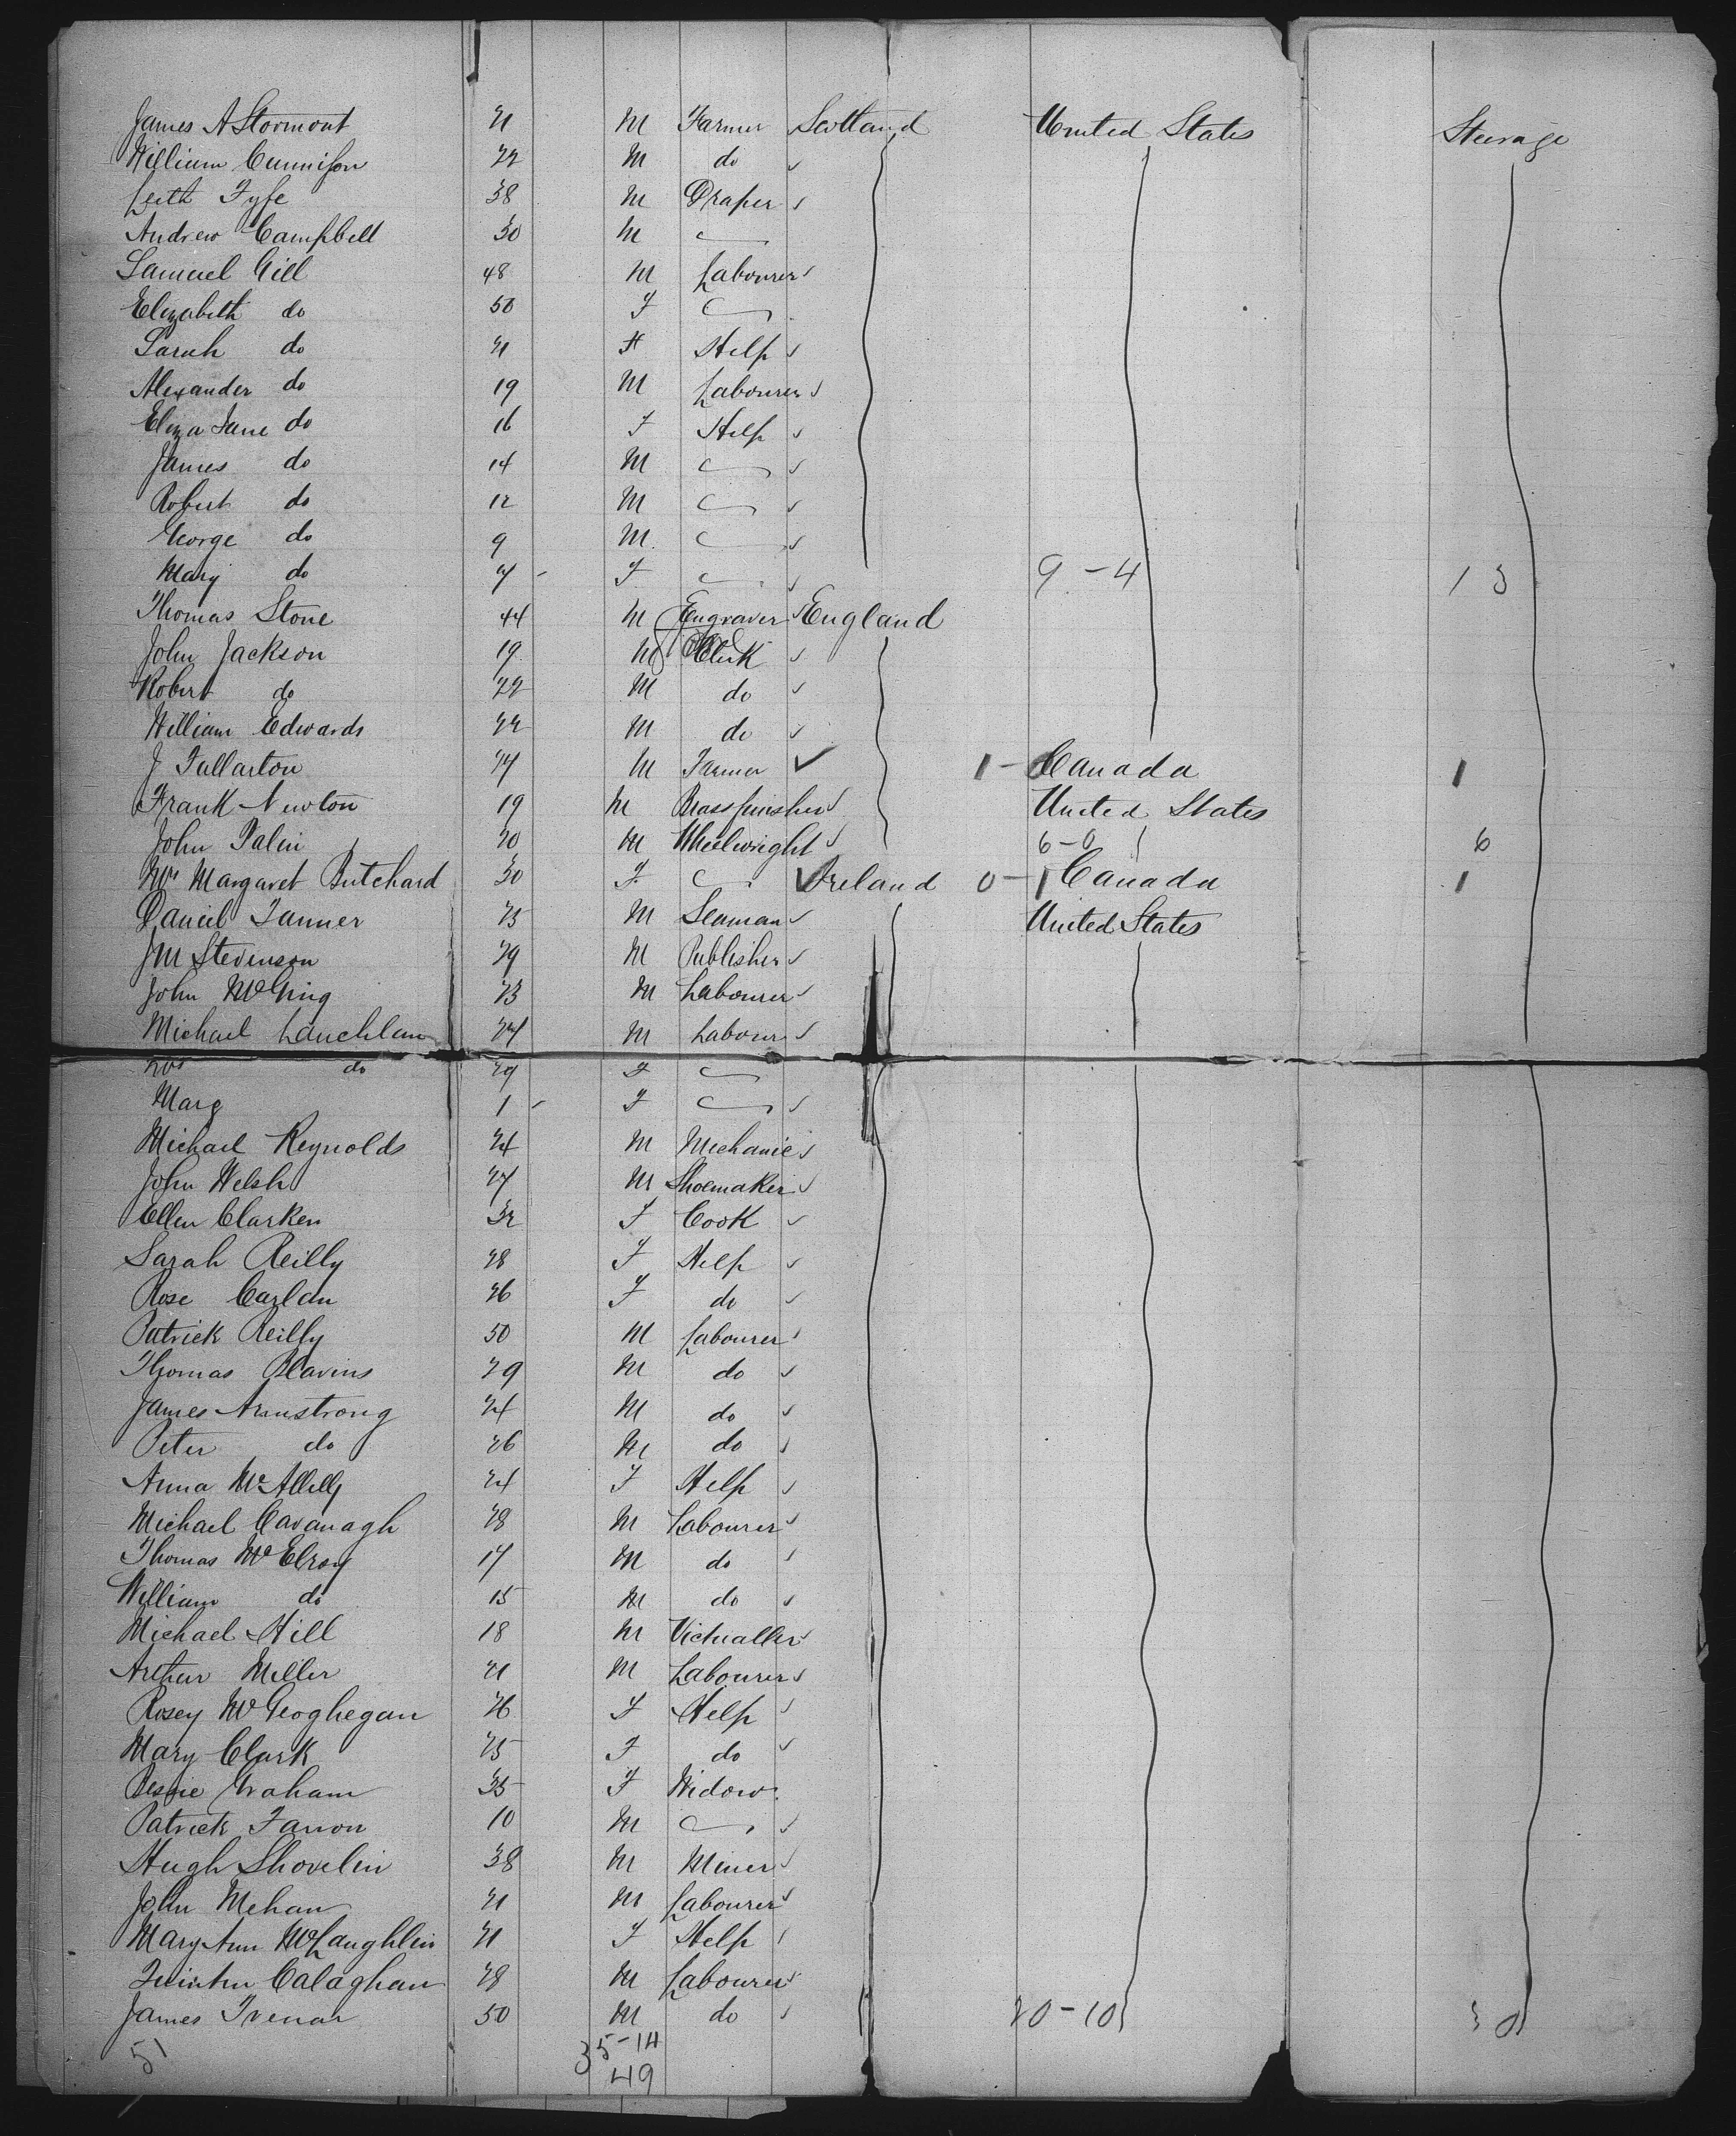 James A Stormont 21 M Farmer Scotland United States Steerage
William Cunnison 22 M do
Leith Fyfe 38 M Draper
Andrew Campbell 30 M
Samuel Gill 48 M Labourer
Elizabeth do 50 F
Sarah do 21 F Help
Alexander do 19 M Labourer
Eliza Jane do 16 F Help
James do 14 M
Robert do 12 M
George do 9 M
Mary do 7 F 9-4 13
Thomas Stone 44 M Engraver England
John Jackson 19 M Clerk
Robert do 22 M do
William Edwards 22 M do
J Fullarton 27 M Farmer 1-0 Canada 1
Frank Newton 19 M Brassfinisher United States
John Palin 20 M Wheelwright 6-0 6
Mrs Margaret Butchard 30 F Ireland 0-1 Canada 1
Daniel Tanner 25 M Seaman United States
J M Stevenson 29 M Publisher
John McGing 23 M Labourer
Michael Lauchlan 27 M Labour
Mrs do 29 F
Marg 1 F
Michael Reynolds 24 M Mechanic
John Welsh 27 M Shoemaker
Ellen Clarken 32 F Cook
Sarah Reilly 28 F Help
Rose Carlan 26 F do
Patrick Reilly 50 M Labourer
Thomas Blavins 29 M do
James Armstrong 24 M do
Peter do 26 M do
Anna 24 F Help
Michael Cavanagh 28 M Labourer
Thomas McElroy 17 M do
William do 15 M do
Michael Hill 18 M Victualler
Arthur Miller 21 M Labourer
Rosey McGeoghegan 26 F Help
Mary Clark 25 F do
Bessie Graham 35 F Widow
Patrick Farron 10 M
Hugh Shovelin 38 M Miner
John Mehan 21 M Labourer
Mary Ann McLaughlin 21 F Help
Calaghan 28 M Labourer
James 50 M do 20-10 30
51 35-14
49